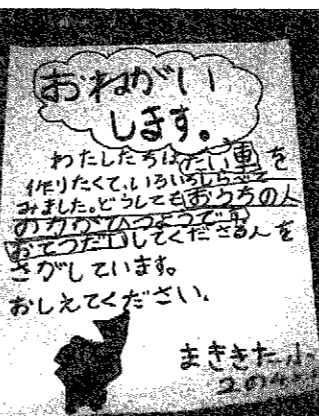 おねがい
します。
わたしたちはだい車を
作りたくて、いろいろしらべて
みました。どうしてもおうちの人
の力がひつようです。
おてつだいしてくださる人を
さがしています。
おしえてください。
まききた小